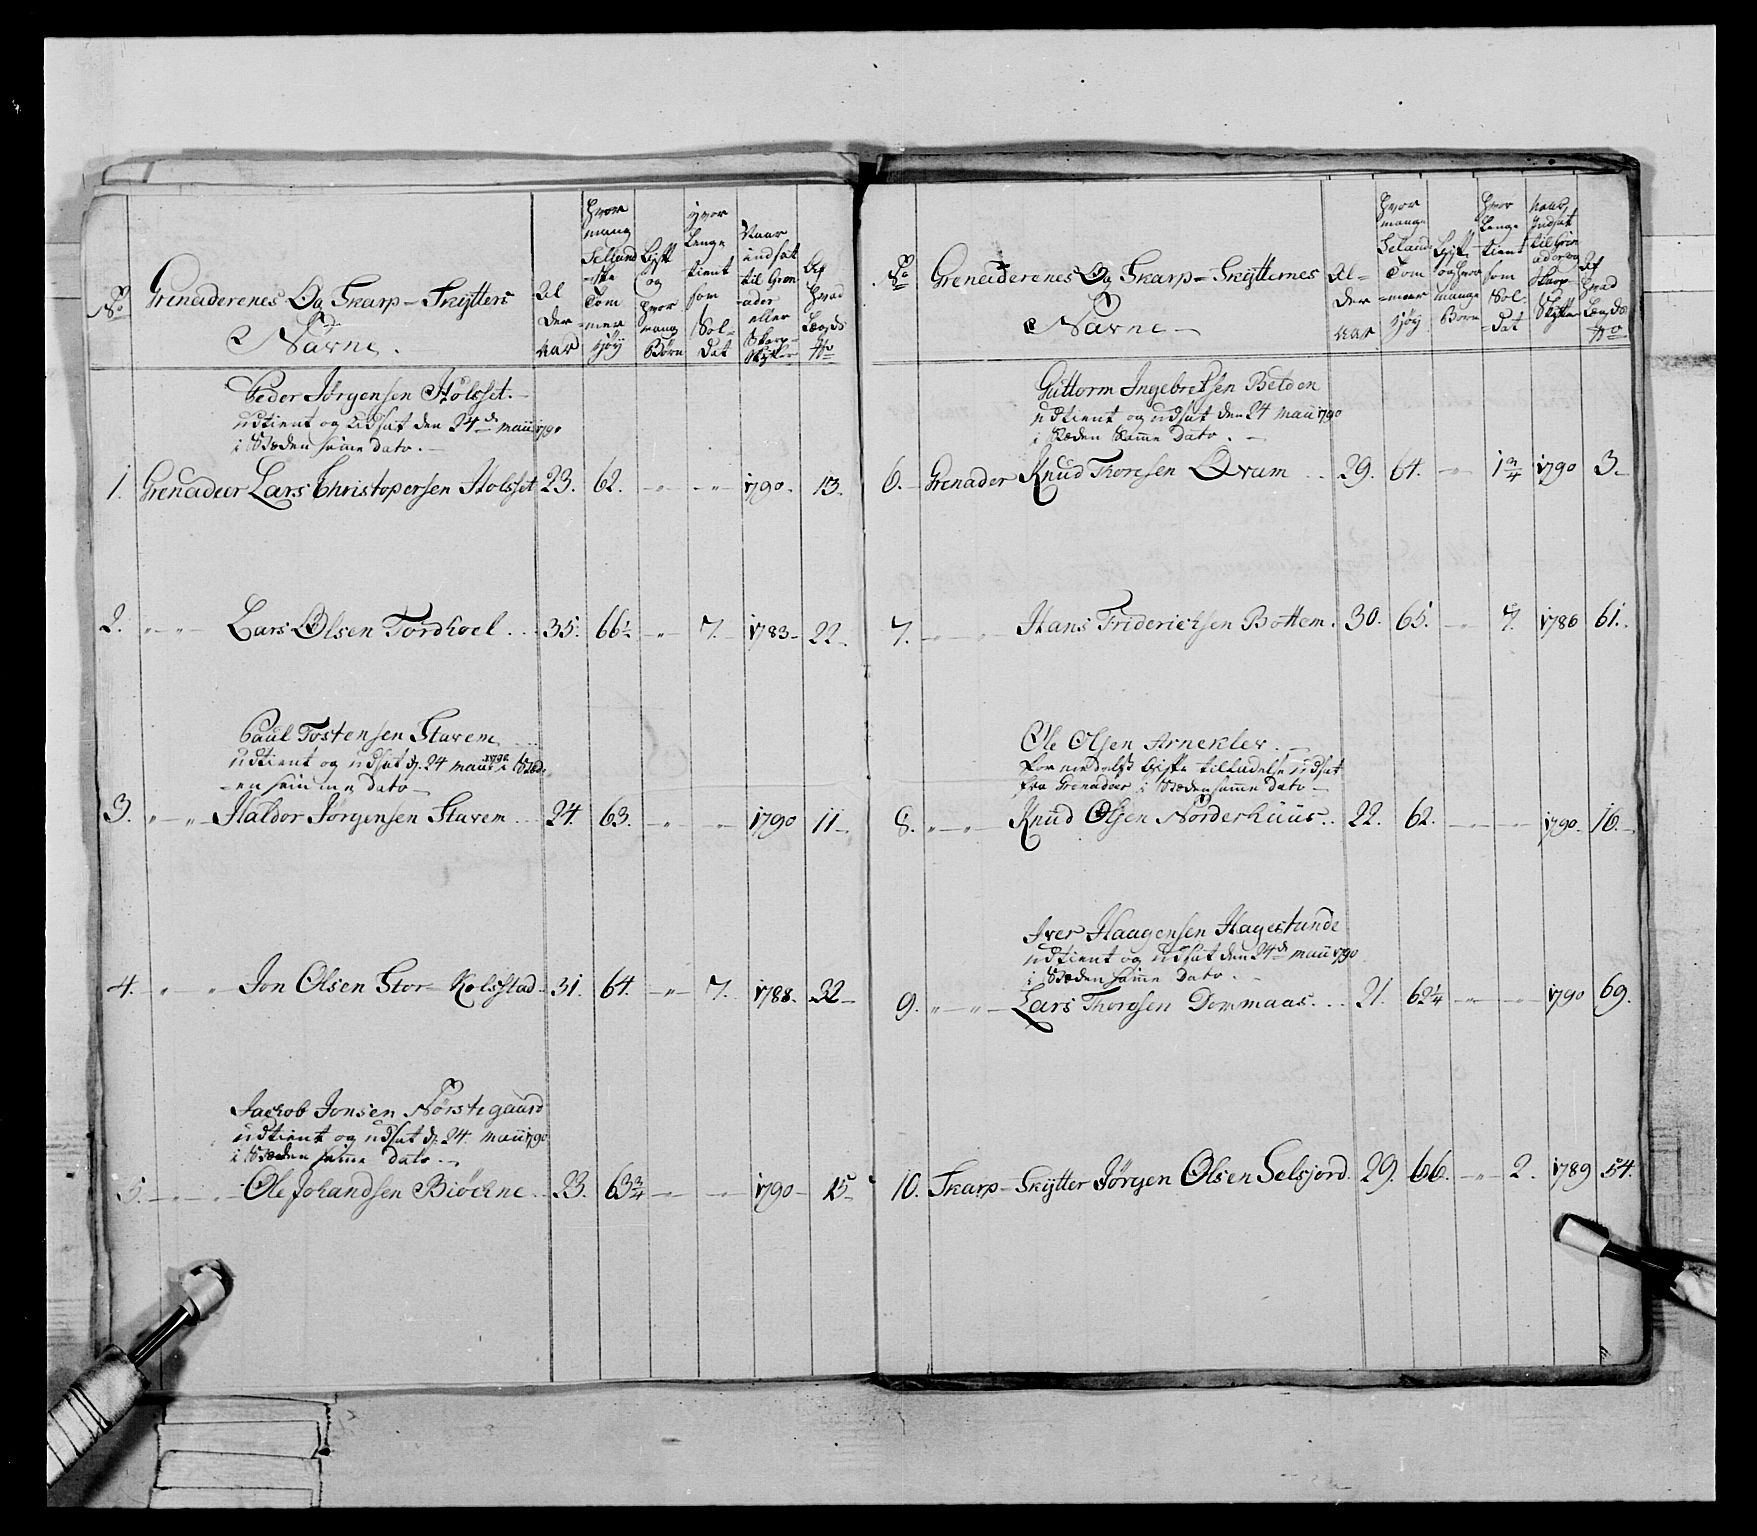 No
Grenaderenes Og Skarp-Skytters
Navne.
Al
der
aar
Hvor
mang
Sellands
-ske
Tom
-mer
høy
Gift
og
hvor
mang
Børn
hvor
lenge
tient
som
Sol-
dat
Naar
indsat
til Gren
-ader
eller
Skarp-
Skytter
Af
hvad
Lægds
No
Peder Jørgensen Holsset.
udtient og udsat den 24de maii 1790
i Stæden samme Dato.
1. Grenadeer Lars Christopersen Holsset 23. 62. - " - " 1790. 13.
2. " " Lars Olsen Tordhoel 35. 66 1/2 - " 7. 1783 - 22 -
Paul Tostensen Stavem
udtient og udsat d. 24 maii 1790 i Stæd-
-en samme Dato -
3. " " Haldor Jørgensen Stavem 24. 63. - " - " 1790 11 -
4. " " Jon Olsen Stor-Kolsstad 31. 64. - " 7. 1788. 32 -
Jachob Jonsen Nørstegaard
udtient og udsat d. 24. maii 1790
i Stæden samme Dato -
5. " " Ole Johandsen Biöchne 23. 63 3/4 - " - " 1790 - 15 -
No
Grenaderenes Og Skarp-Skytternes
Navne -
Al-
der
aar
Hvor
mange
Selands
Tom
-mer
høy
Gift
og hvor
mange
Børn
hvor
lenge
tient
som
Sol-
dat
naar
indsat
til Gren
ader og
Skarp
Skytter
Af
hvad
Lægds
No
Guttorm Ingebretsen Betdon
udtient og udsat den 24 maii 1790
i Stæden Samme Dato. -
6. - Grenader Knud Thoresen Qvam 29. 64. - " 1 3/4 1790 3. -
7. - " " Hans Friderichsen Bottem. 30. 65. - " 7. 1786 61.
Ole Olsen Arnekler.
formedelst Gifte tilladelse udsat
fra Grenadeer i Stæden samme Dato -
8. " " Knud Olsen Norderhuus. 22. 62. - " - " 1790 - 16. -
Iver Haagensen Hagestunde
udtient og udsat den 24de maii 1790
i Stæden samme Dato. -
9. " " Lars Thordsen Dommaas. 21. 62 1/4 - " - " 1790 69.
10. Skarp-Skytter Jørgen Olsen Selsjord. 29. 66. - " 2. 1789 54.